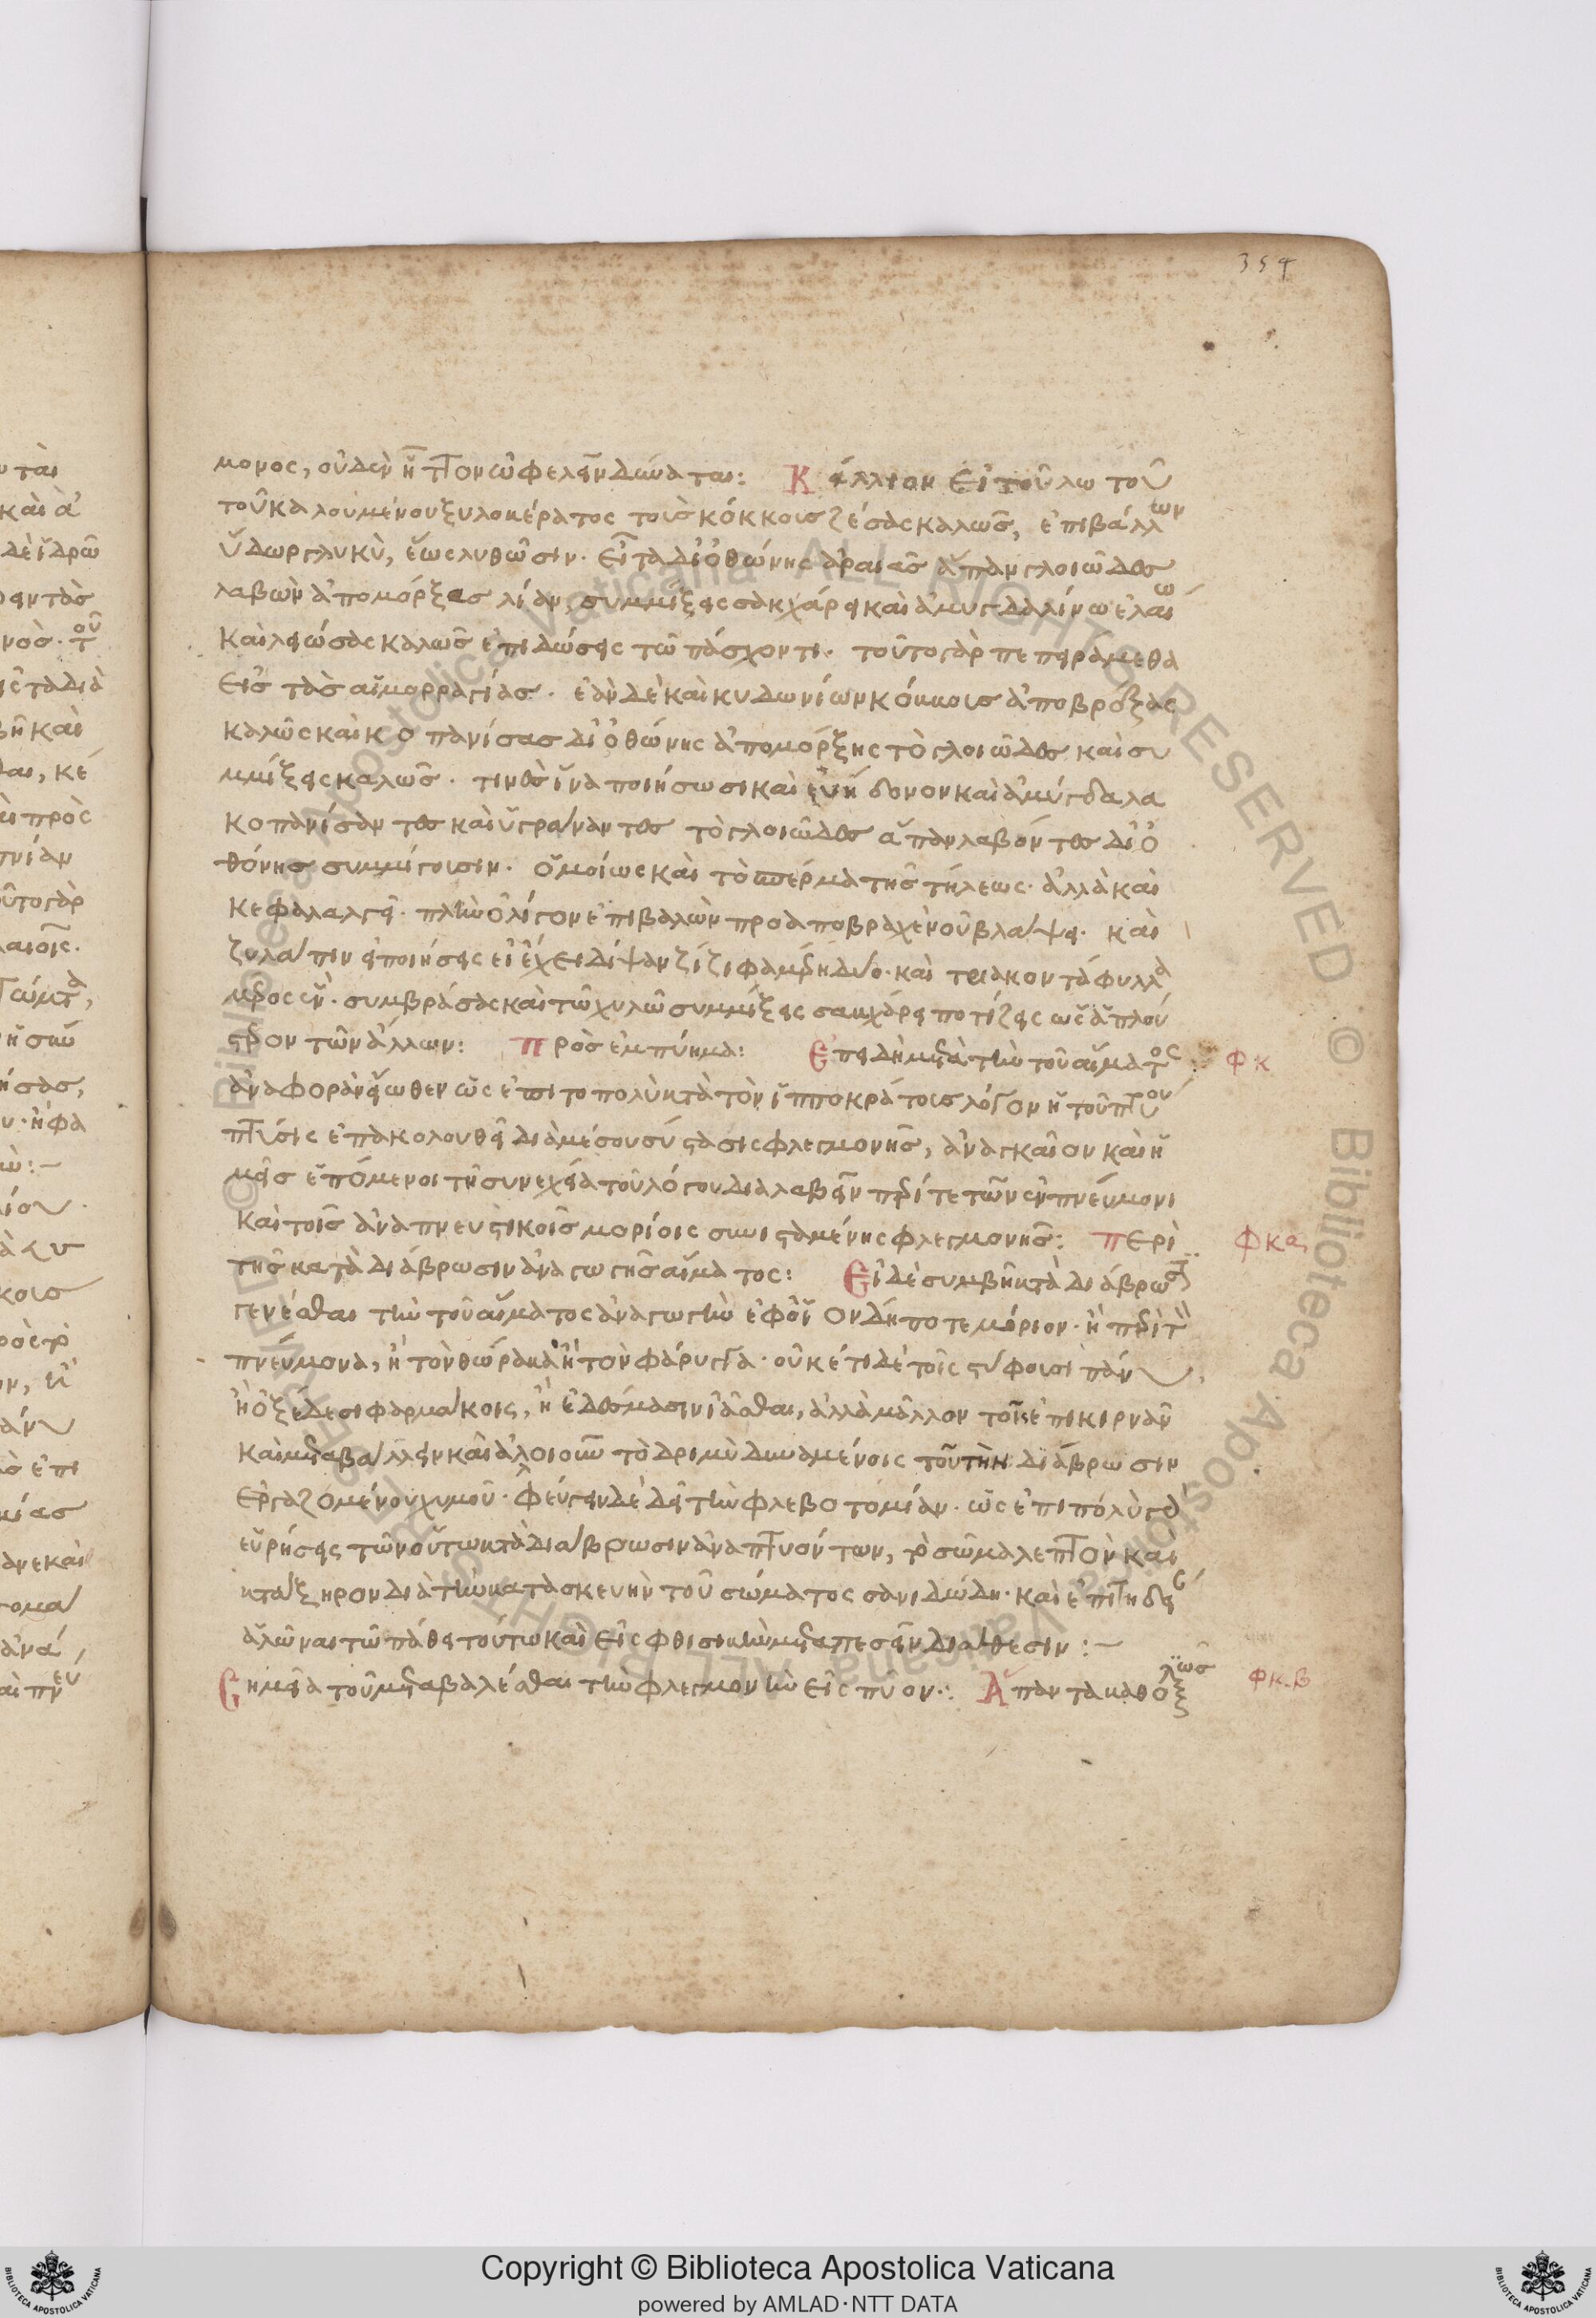 354
μονος, οὐδὲν ἧττον ὠφελεῖν δύναται: Κάλλιον ἐκ τούτω τοῦ
τοῦ καλουμένου ξυλοκέρατος τοὺς κόκκους ζέσας καλῶς, ἐπιβάλλων
ὕδωρ γλυκὺ, ἕως λυθῶσιν. Εἶτα δι ὀθώνης ἀραιᾶς ἅπαν γλοιῶδες
λαβὼν ἀπομόρξας λίαν, συμμίξεις σακχάρει καὶ ἀμυγδαλίνω ἐλαίω
Καὶ λειώσας καλῶς ἐπιδώσεις τῶ πάσχοντι. τοῦτο γὰρ πεπειράμεθα
Εἰς τὰς αἱμορραγίας. ἐὰν δὲ καὶ κυδωνίων κόκκους ἀποβρέξας
καλῶς καὶ κοπανίσας δι ὀθώνης ἀπομόρξης τὸ γλοιῶδες καὶ συ
μμίξεις καλῶς. τινὲς ἵνα ποιήσωσι καὶ εὐήδονον καὶ ἀμύγδαλα
κοπανίσαντες καὶ ὑγράναντες τὸ γλοιῶδες ἅπαν λαβόντες δι ὀ
θόνης συμμίγουσιν. ὁμοίως καὶ τὸ σπέρμα τῆς τήλεως. ἀλλὰ καὶ
κεφαλαλγεῖ. πλὴν ὀλίγον ἐπιβαλὼν προαποβραχὲν οὐ βλάψει. καὶ
ζυλάπιν εἰ ποιήσεις εἰ ἔχει δίψαν ζίζιφα μὲν δύο. καὶ τριάκοντα φύλλα
μέρος ἓν. συμβράσας καὶ τῶ χυλῶ συμμίξεις σακχάρει ποτίζεις ὡς ἁπλού
στερον τῶν ἄλλων: Πρὸς ἐμπύημα: Ἐπειδὴ μετὰ τὴν τοῦ αἵματος φκ
ἀναφορὰν εἴωθεν ὡς ἐπι το πολὺ κατὰ τὸν ἱπποκράτους λόγον ἡ τοῦ πύου
πτύσις ἐπακολουθεῖ διὰ μέσου συστάσις φλεγμονῆς, ἀναγκαῖον καὶ ἡ
μᾶς ἑπόμενοι τῆ συνεχεία τοῦ λόγου διαλαβεῖν περί τε τῶν ἐν πνεύμονι
Καὶ τοῖς ἀναπνευστικοῖς μορίοις συνισταμένης φλεγμονῆς: Περὶ φκα
τῆς κατὰ διάβρωσιν ἀναγωγῆς αἵματος: Εἰ δὲ συμβῆ κατὰ διάβρωσιν
γενέσθαι τὴν τοῦ αἵματος ἀναγωγὴν ἐφ οἷον δήποτε μόριον. ἢ περὶ τὸν
πνεύμονα, ἢ τὸν θώρακα ἢ τὸν φάρυγγα. οὐκέτι δὲ τοῖς στύφουσι πάνυ,
ἢ ὀξώδεσι φαρμάκοις, ἢ ἐδέσμασιν ἰᾶσθαι, ἀλλὰ μᾶλλον τοῖς ἐπικιρνᾶν
Καὶ μεταβάλλειν καὶ ἀλοιοῦν τὸ δριμὺ δυναμένοις τοῦ τὴν διάβρωσιν
Ἐργαζομένου χυμοῦ. φεύγειν δὲ δεῖ τὴν φλεβοτομίαν. ὡς ἐπιπολὺ γὰρ
εὑρήσεις τῶν οὕτω κατὰ διάβρωσιν ἀναπτυόντων, τὸ σῶμα λεπτὸν καὶ
κατάξηρον διὰ τὴν κατασκευὴν τοῦ σώματος σανιδώδη. καὶ ἐπιτηδες
ἁλῶναι τῶ πάθει τούτω καὶ εἰς φθισικὴν μεταπεσεῖν διάθεσιν:~
Σημεῖα τοῦ μεταβαλέσθαι τὴν φλεγμονὴν εἰς πῦον: Ἅπαντα καθό φκβ
Copyright © Biblioteca Apostolica Vaticana
powered by AMLAD·NTT DATA